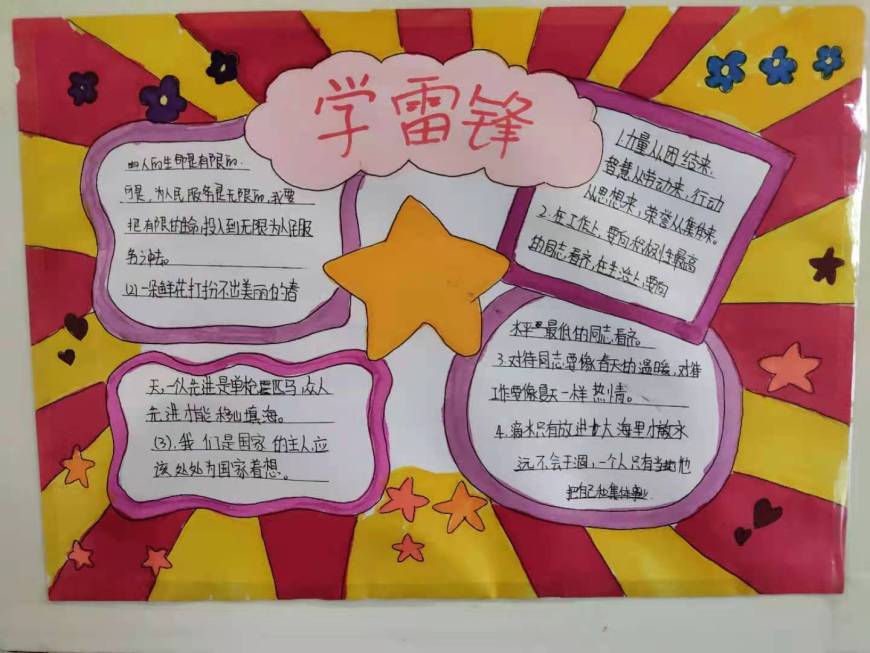 学雷锋
(1)人的生命是有限的.
可是,为人民服务是无限的,我要
把有限的生命,投入到无限为人民服
务之中去。
(2)一朵鲜花打扮不出美丽的春
天,一个先进是单枪匹马,众人
先进才能移山填海。
(3).我们是国家的主人,应
该处处为国家着想。
1.力量从团结来,
智慧从劳动来,行动
从思想来,荣誉从集体来。
2.在工作上,要向积极性最高
的同志看齐,在生活上,要向
水平最低的同志看齐。
3.对待同志要像春天的温暖,对待
工作要像夏天一样热情。
4.滴水只有放进大海里才能永
远不会干涸,一个人只有当他
把自己和集体事业